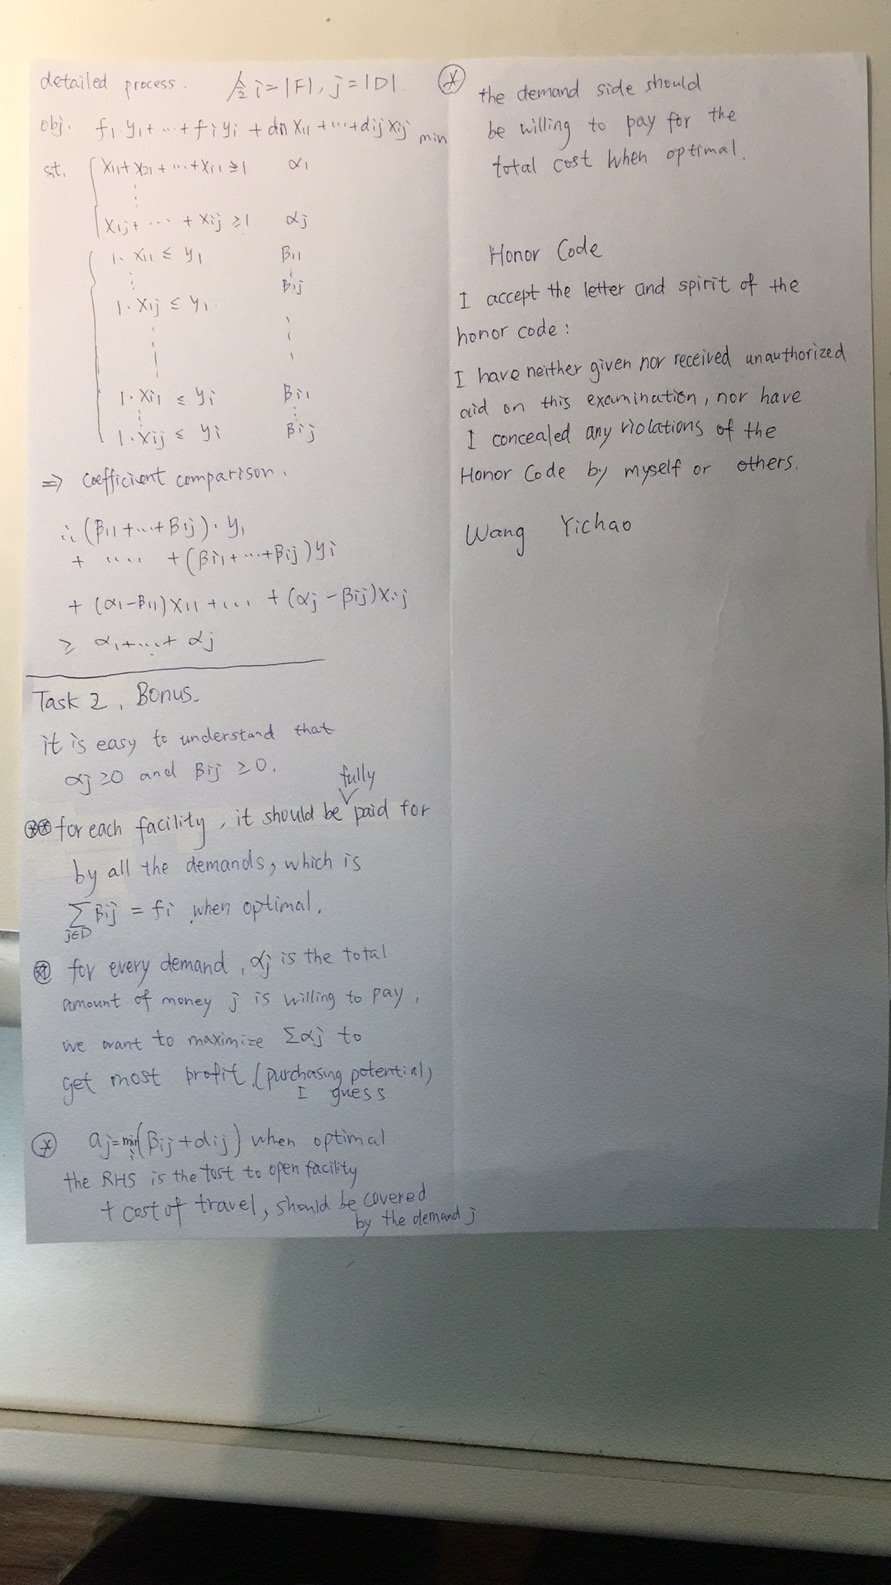 detailed process. 令 i=|F|, j=|D|
obj. f₁·y₁+ ··· + fiyi + d₁₁x₁₁ + ··· + dijxij min
st. x₁₁+x₂₁+ ··· +xi₁≥1 α₁
x₁j+ ··· + xij ≥1 αj
1·x₁₁ ≤ y₁ β₁₁
1·x₁j ≤ y₁ β₁j
1·xi₁ ≤ yi βi₁
1·xij ≤ yi βij
⇒ coefficient comparison.
∴ (β₁₁+···+β₁j)·y₁
+ ···· +(βi₁+···+βij)yi
+ (α₁-β₁₁)x₁₁+··· + (αj-βij)xij
≥ α₁+···+ αj
Task 2, Bonus.
it is easy to understand that
αj≥0 and βij ≥0.
fully
for each facility, it should be paid for
by all the demands, which is
∑ βij = fi when optimal.
j∈D
for every demand, αj is the total
amount of money j is willing to pay,
we want to maximize Σαj to
get most profit. (purchasing potential)
I guess
aj=min(βij+dij) when optimal
i
the RHS is the tost to open facility
+ cost of travel, should be covered
by the demand j
the demand side should
be willing to pay for the
total cost when optimal.
Honor Code
I accept the letter and spirit of the
honor code:
I have neither given nor received unauthorized
aid on this examination, nor have
I concealed any violations of the
Honor Code by myself or others.
Wang Yichao